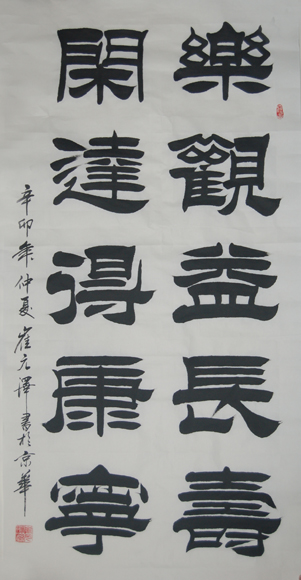 樂觀益長壽
閑達得康寧
辛卯年仲夏崔元澤書於京華